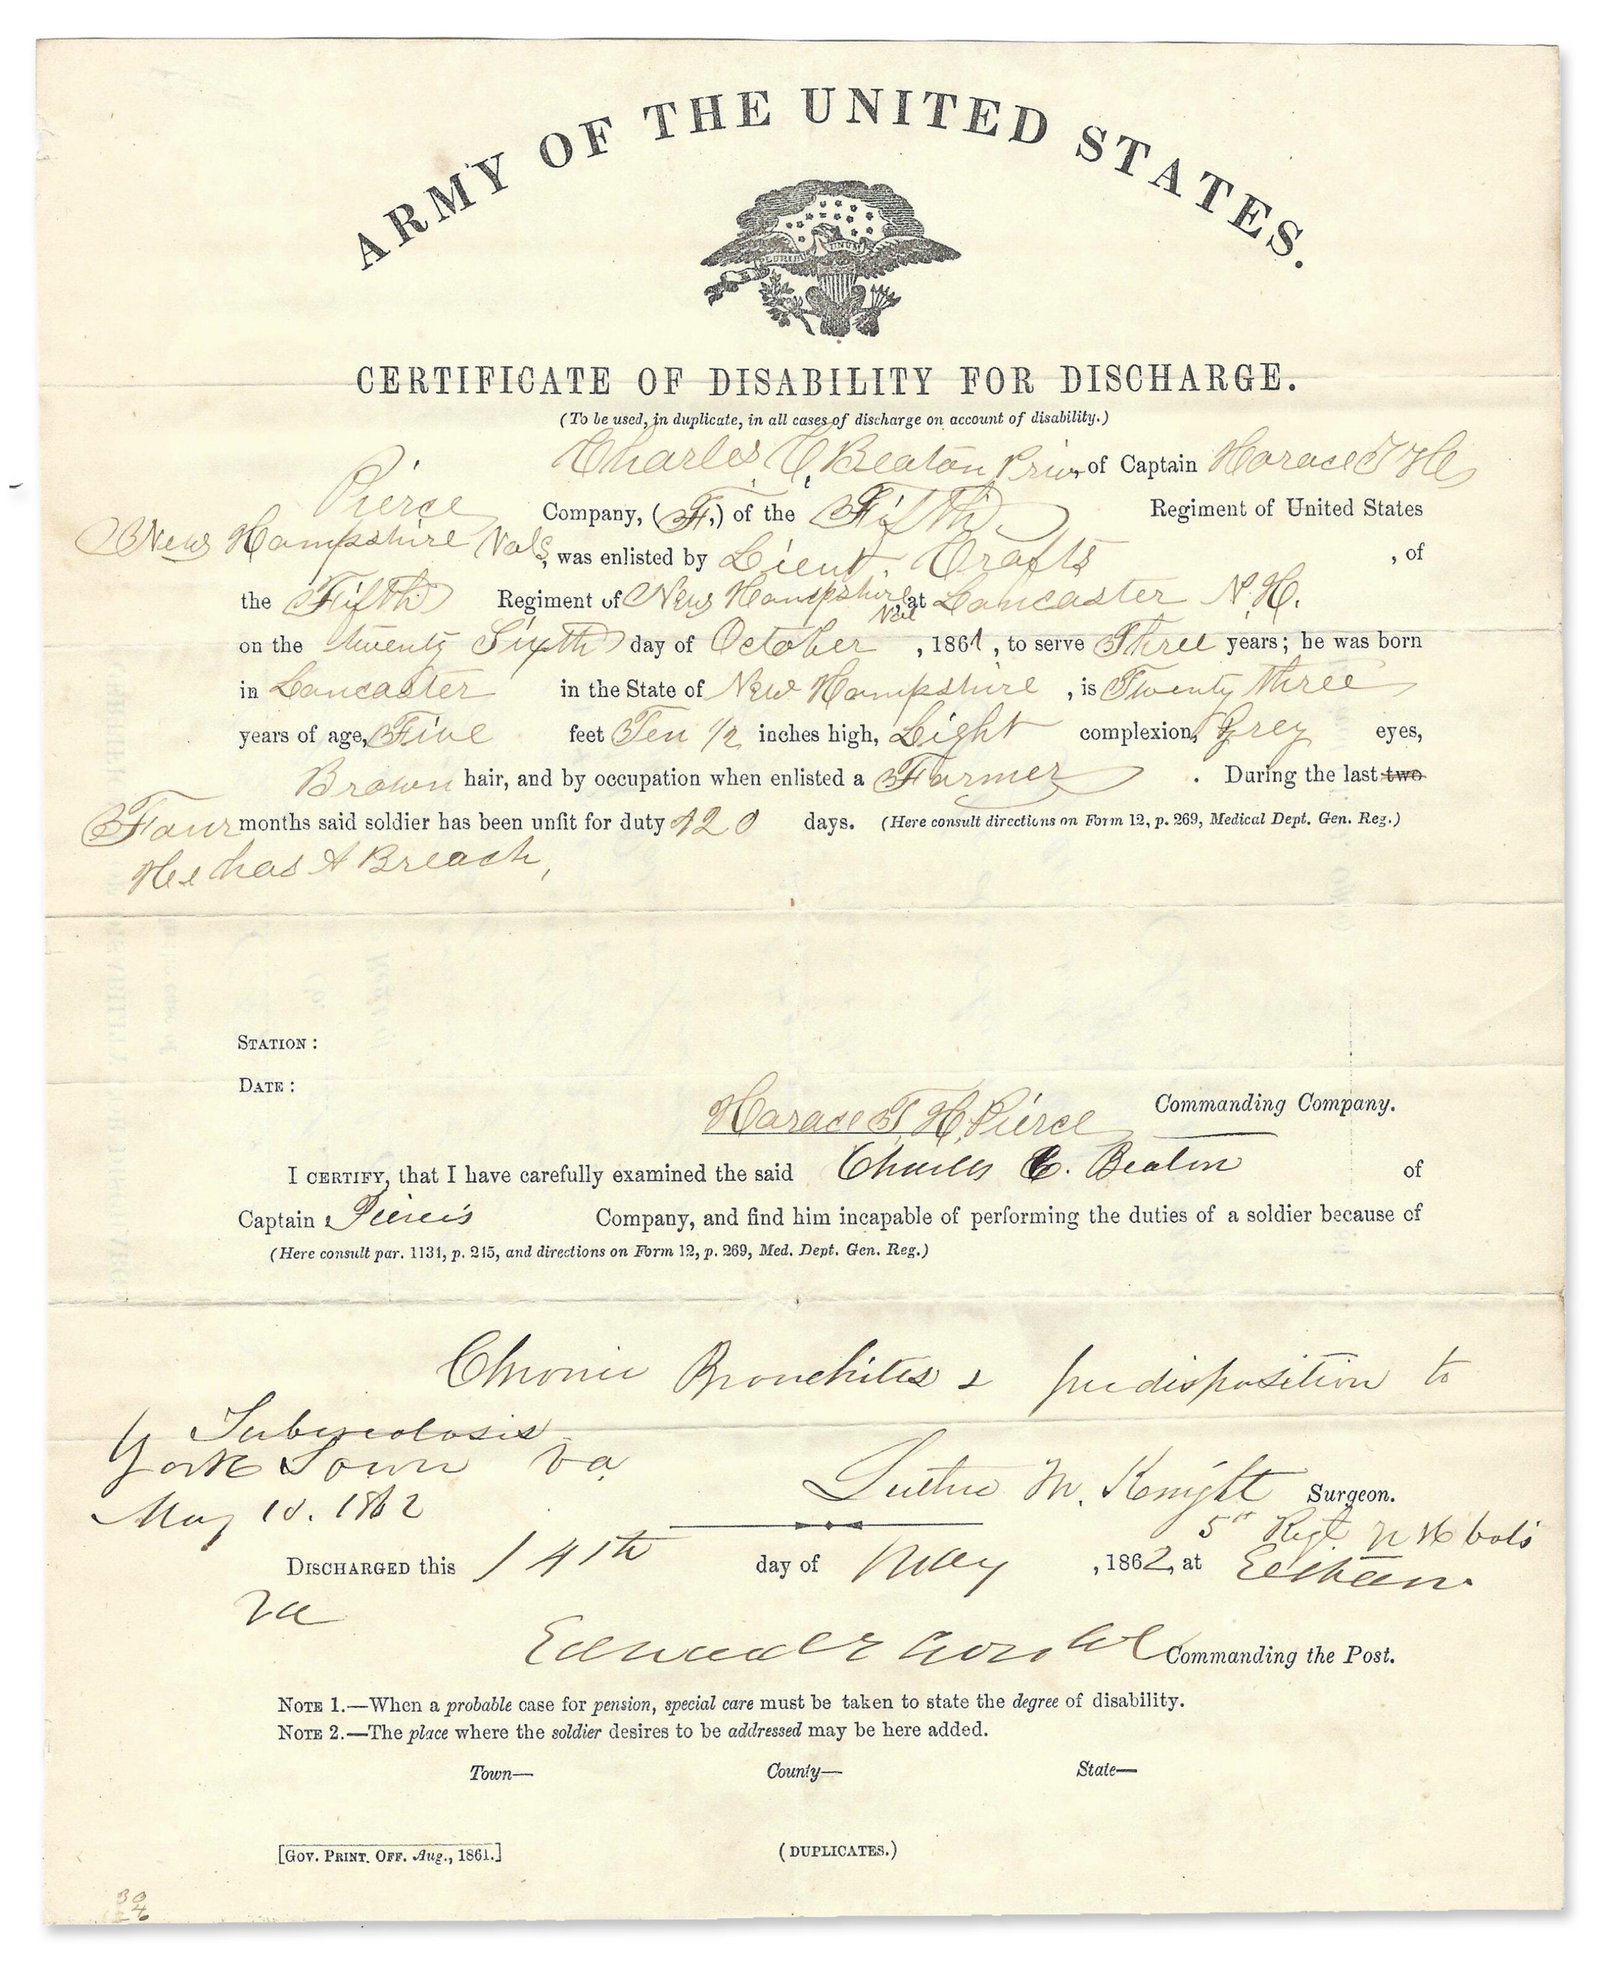 ARMY OF THE UNITED STATES.
CERTIFICATE OF DISABILITY FOR DISCHARGE.
(To be used, in duplicate, in all cases of discharge on account of disability.)
Charles C. Beaton Priv. of Captain Horace T H
Pierce Company, (F,) of the Fifth Regiment of United States
New Hampshire Vols, was enlisted by Lieut. Crafts, of
the Fifth Regiment of New Hampshire Vol at Lancaster N.H.
on the twenty Sixth day of October, 1861, to serve Three years; he was born
in Lancaster in the State of New Hampshire, is Twenty three
years of age, Five feet Ten 1/2 inches high, Light complexion, Grey eyes,
Brown hair, and by occupation when enlisted a Farmer. During the last two
Four months said soldier has been unfit for duty 120 days. (Here consult directions on Form 12, p. 269, Medical Dept. Gen. Reg.)
He has A Breach,
STATION:
DATE:
Horace T. H. Pierce Commanding Company.
I CERTIFY, that I have carefully examined the said Charles C. Beaton of
Captain Pierce's Company, and find him incapable of performing the duties of a soldier because of
(Here consult par. 1131, p. 215, and directions on Form 12, p. 269, Med. Dept. Gen. Reg.)
Chronic Bronchites & predisposition to
Tuberculosis
York Town Va.
Luther M. Knight Surgeon.
May 10. 1862
5th Regt N H Vols
DISCHARGED this 14th day of May, 1862, at Eltham
Va
Edward E Cross Col Commanding the Post.
NOTE 1.—When a probable case for pension, special care must be taken to state the degree of disability.
NOTE 2.—The place where the soldier desires to be addressed may be here added.
Town— County— State—
[GOV. PRINT. OFF. Aug., 1861.] (DUPLICATES.)